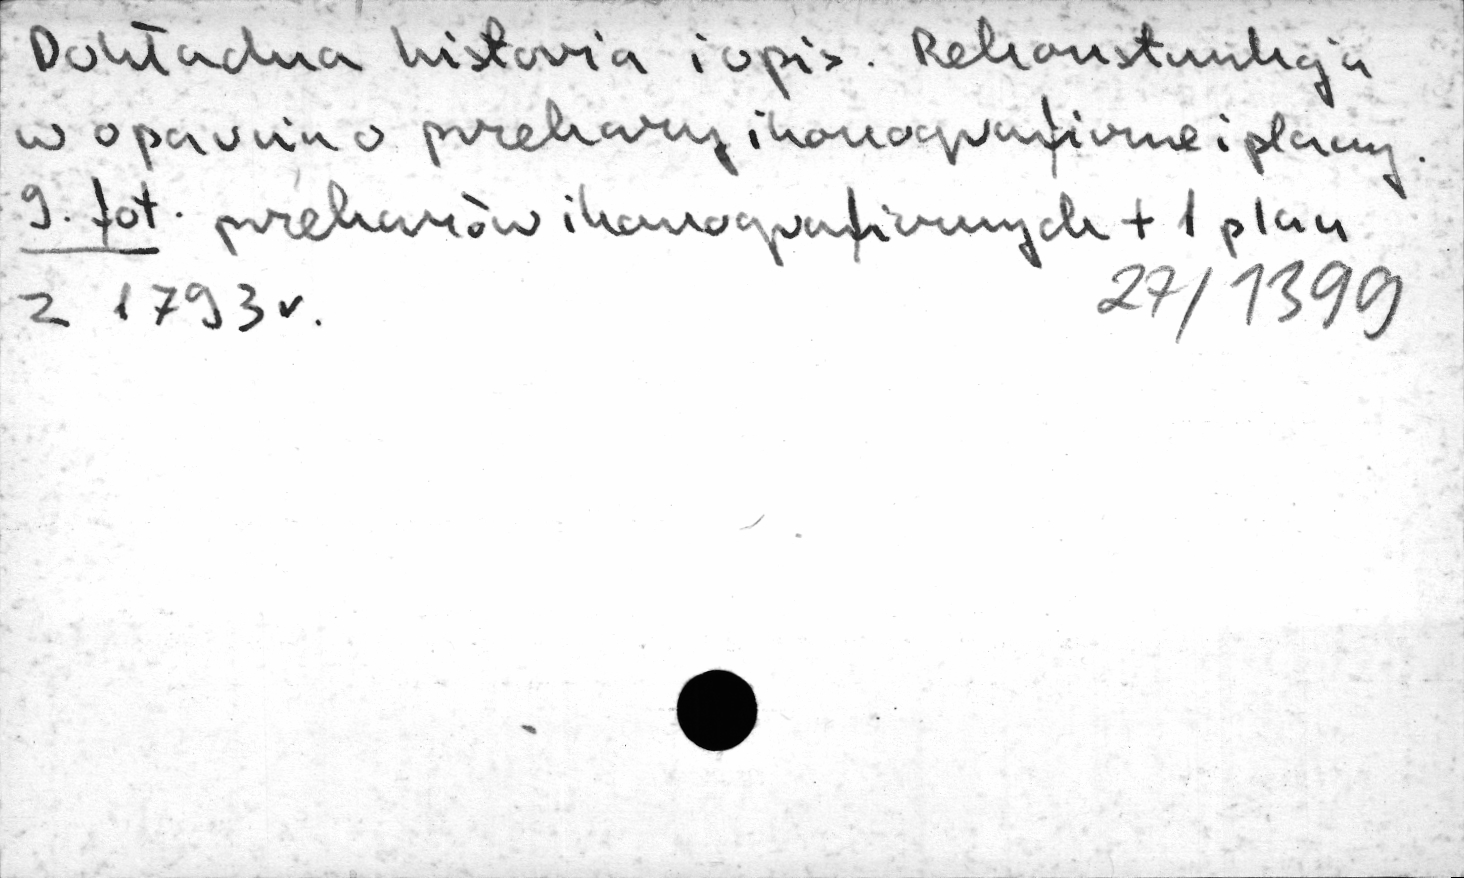 Dokładna historia i opis. Rekonstrukcja
w oparciu o przekazy ikonograficzne i plany.
9. fot. przekazów ikonograficznych + 1 plan
z 1793 r.
27/1399